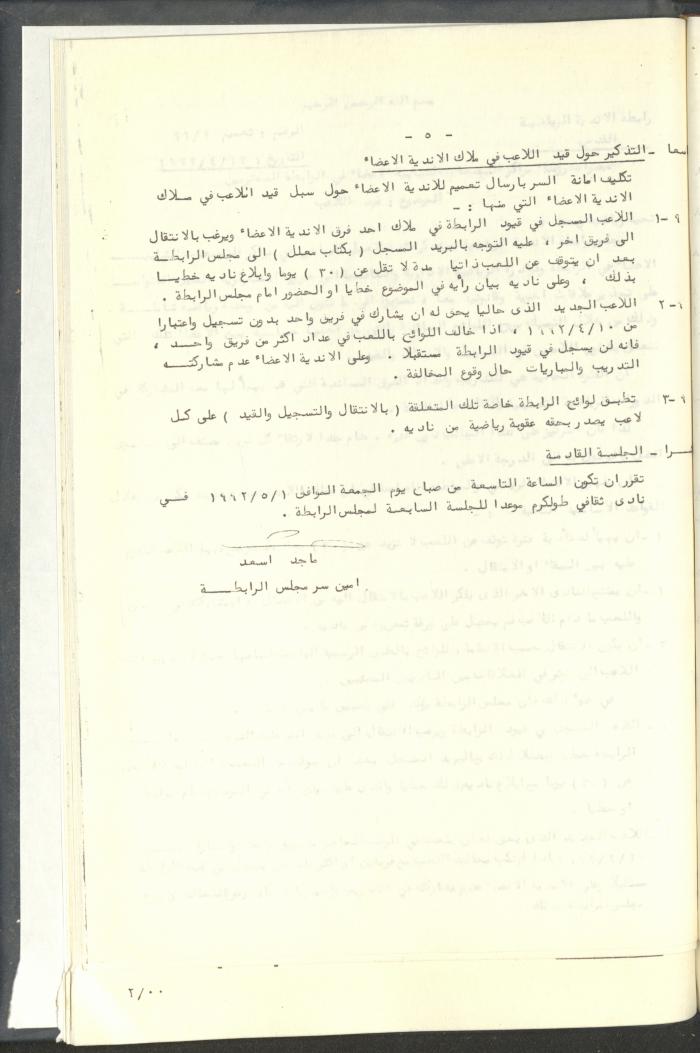 - ٥ -
سعا - التذكير حول قيد اللاعب في ملاك الاندية الاعضاء
تكليف امانة السر بارسال تعميم للاندية الاعضاء حول سبل قيد اللاعب في ملاك
الاندية الاعضاء التي منها : -
٩-١ اللاعب المسجل في قيود الرابطة في ملاك احد فرق الاندية الاعضاء ويرغب بالانتقال
الى فريق اخر ، عليه التوجه بالبريد المسجل ( بكتاب معلل ) الى مجلس الرابطة
بعد ان يتوقف عن اللعب ذاتيا مدة لا تقل عن ( ٣٠ ) يوما وابلاغ ناديه خطيا
بذلك ، وعلى ناديه بيان رأيه في الموضوع خطيا او الحضور امام مجلس الرابطة .
٩-٢ اللاعب الجديد الذى حاليا يحق له ان يشارك في فريق واحد بدون تسجيل واعتبارا
من ١٩٩٢/٤/١٠ ، اذا خالف اللوائح باللعب في عداد اكثر من فريق واحد ،
فانه لن يسجل في قيود الرابطة مستقبلا . وعلى الاندية الاعضاء عدم مشاركته
التدريب والمباريات حال وقوع المخالفة .
٩-٣ تطبق لوائح الرابطة خاصة تلك المتعلقة ( بالانتقال والتسجيل والقيد ) على كل
لاعب يصدر بحقه عقوبة رياضية من ناديه .
شرا - الجلسة القادمة
تقرر ان تكون الساعة التاسعة من صباح يوم الجمعة الموافق ١٩٩٢/٥/١ في
نادى ثقافي طولكرم موعدا للجلسة السابعة لمجلس الرابطة .
ماجد اسعد
امين سر مجلس الرابطة
٢/٠٠